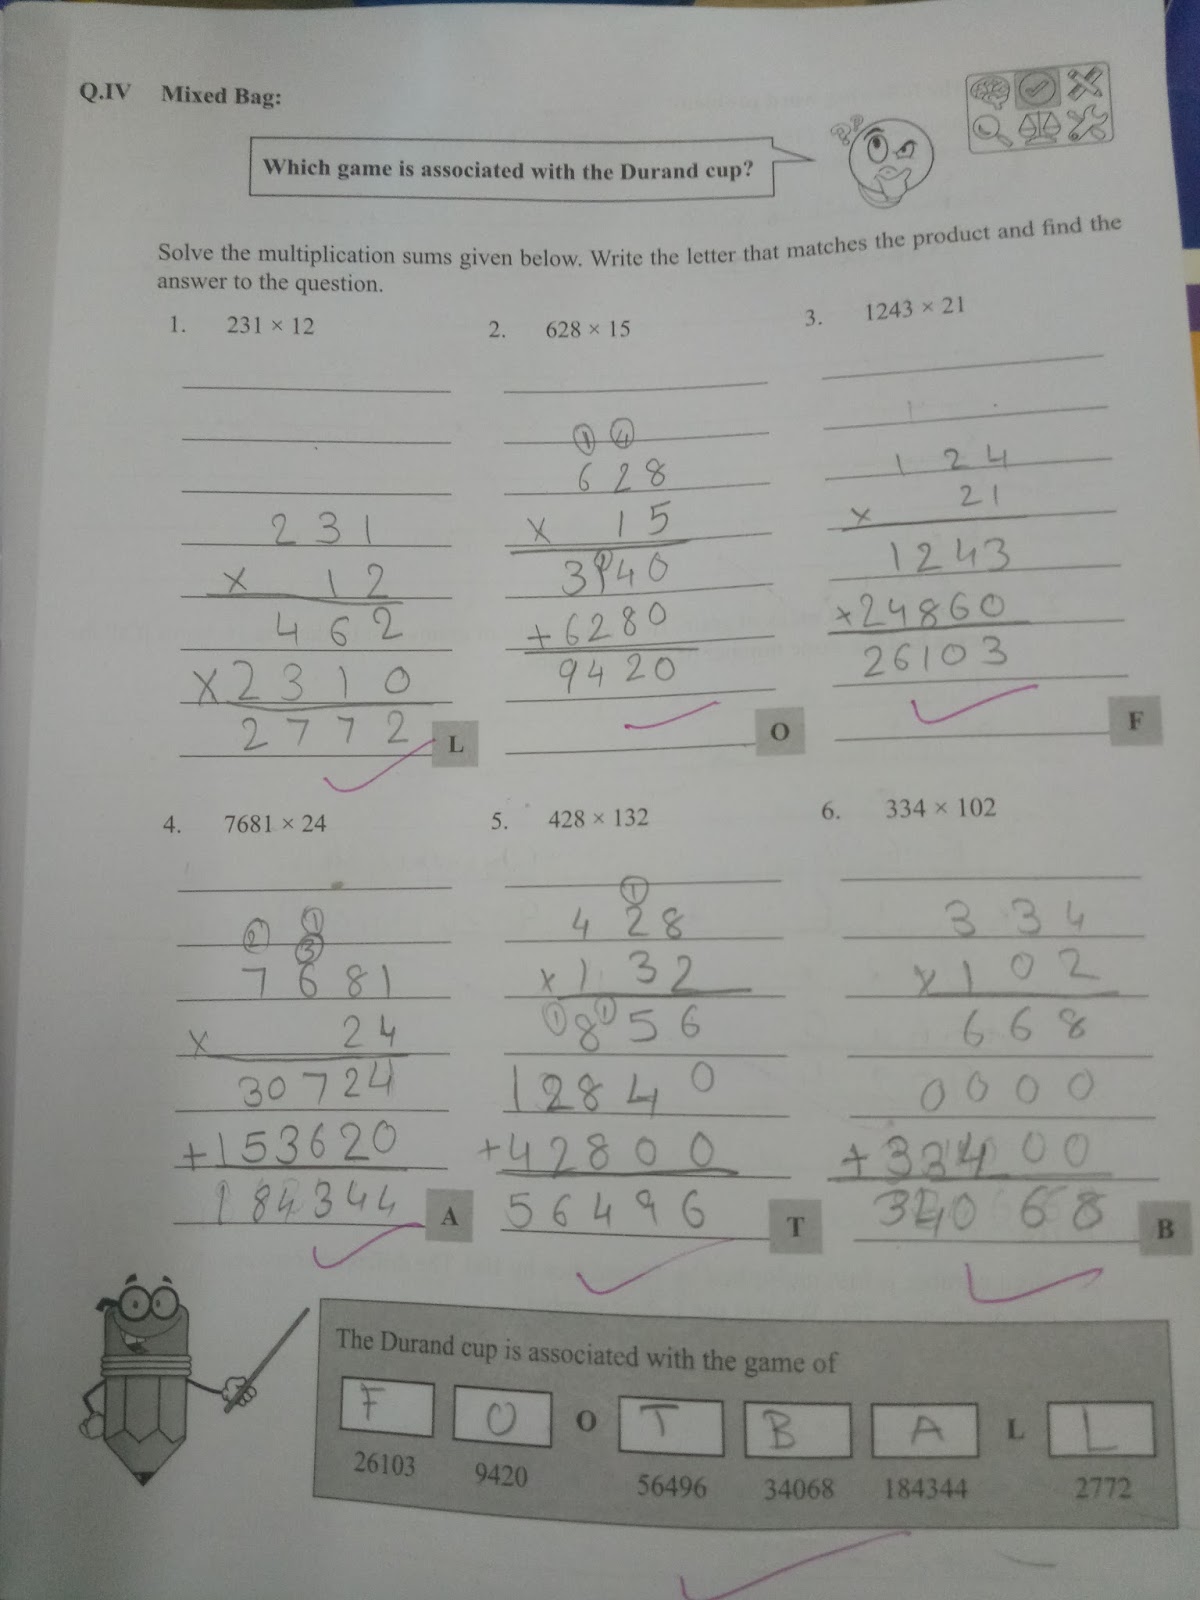 Q.IV Mixed Bag:
Which game is associated with the Durand cup?
Solve the multiplication sums given below. Write the letter that matches the product and find the
answer to the question.
1. 231 × 12
231
× 12
462
×2310
2772
L
2. 628 × 15
1 4
628
× 15
3140
+6280
9420
O
3. 1243 × 21
124
× 21
1243
+24860
26103
F
4. 7681 × 24
1
2 3
7681
× 24
30724
+153620
184344
A
5. 428 × 132
1
428
×132
1 1
856
12840
+42800
56496
T
6. 334 × 102
334
×102
668
0000
+33400
34068
B
The Durand cup is associated with the game of
F O O T B A L L
26103 9420 56496 34068 184344 2772